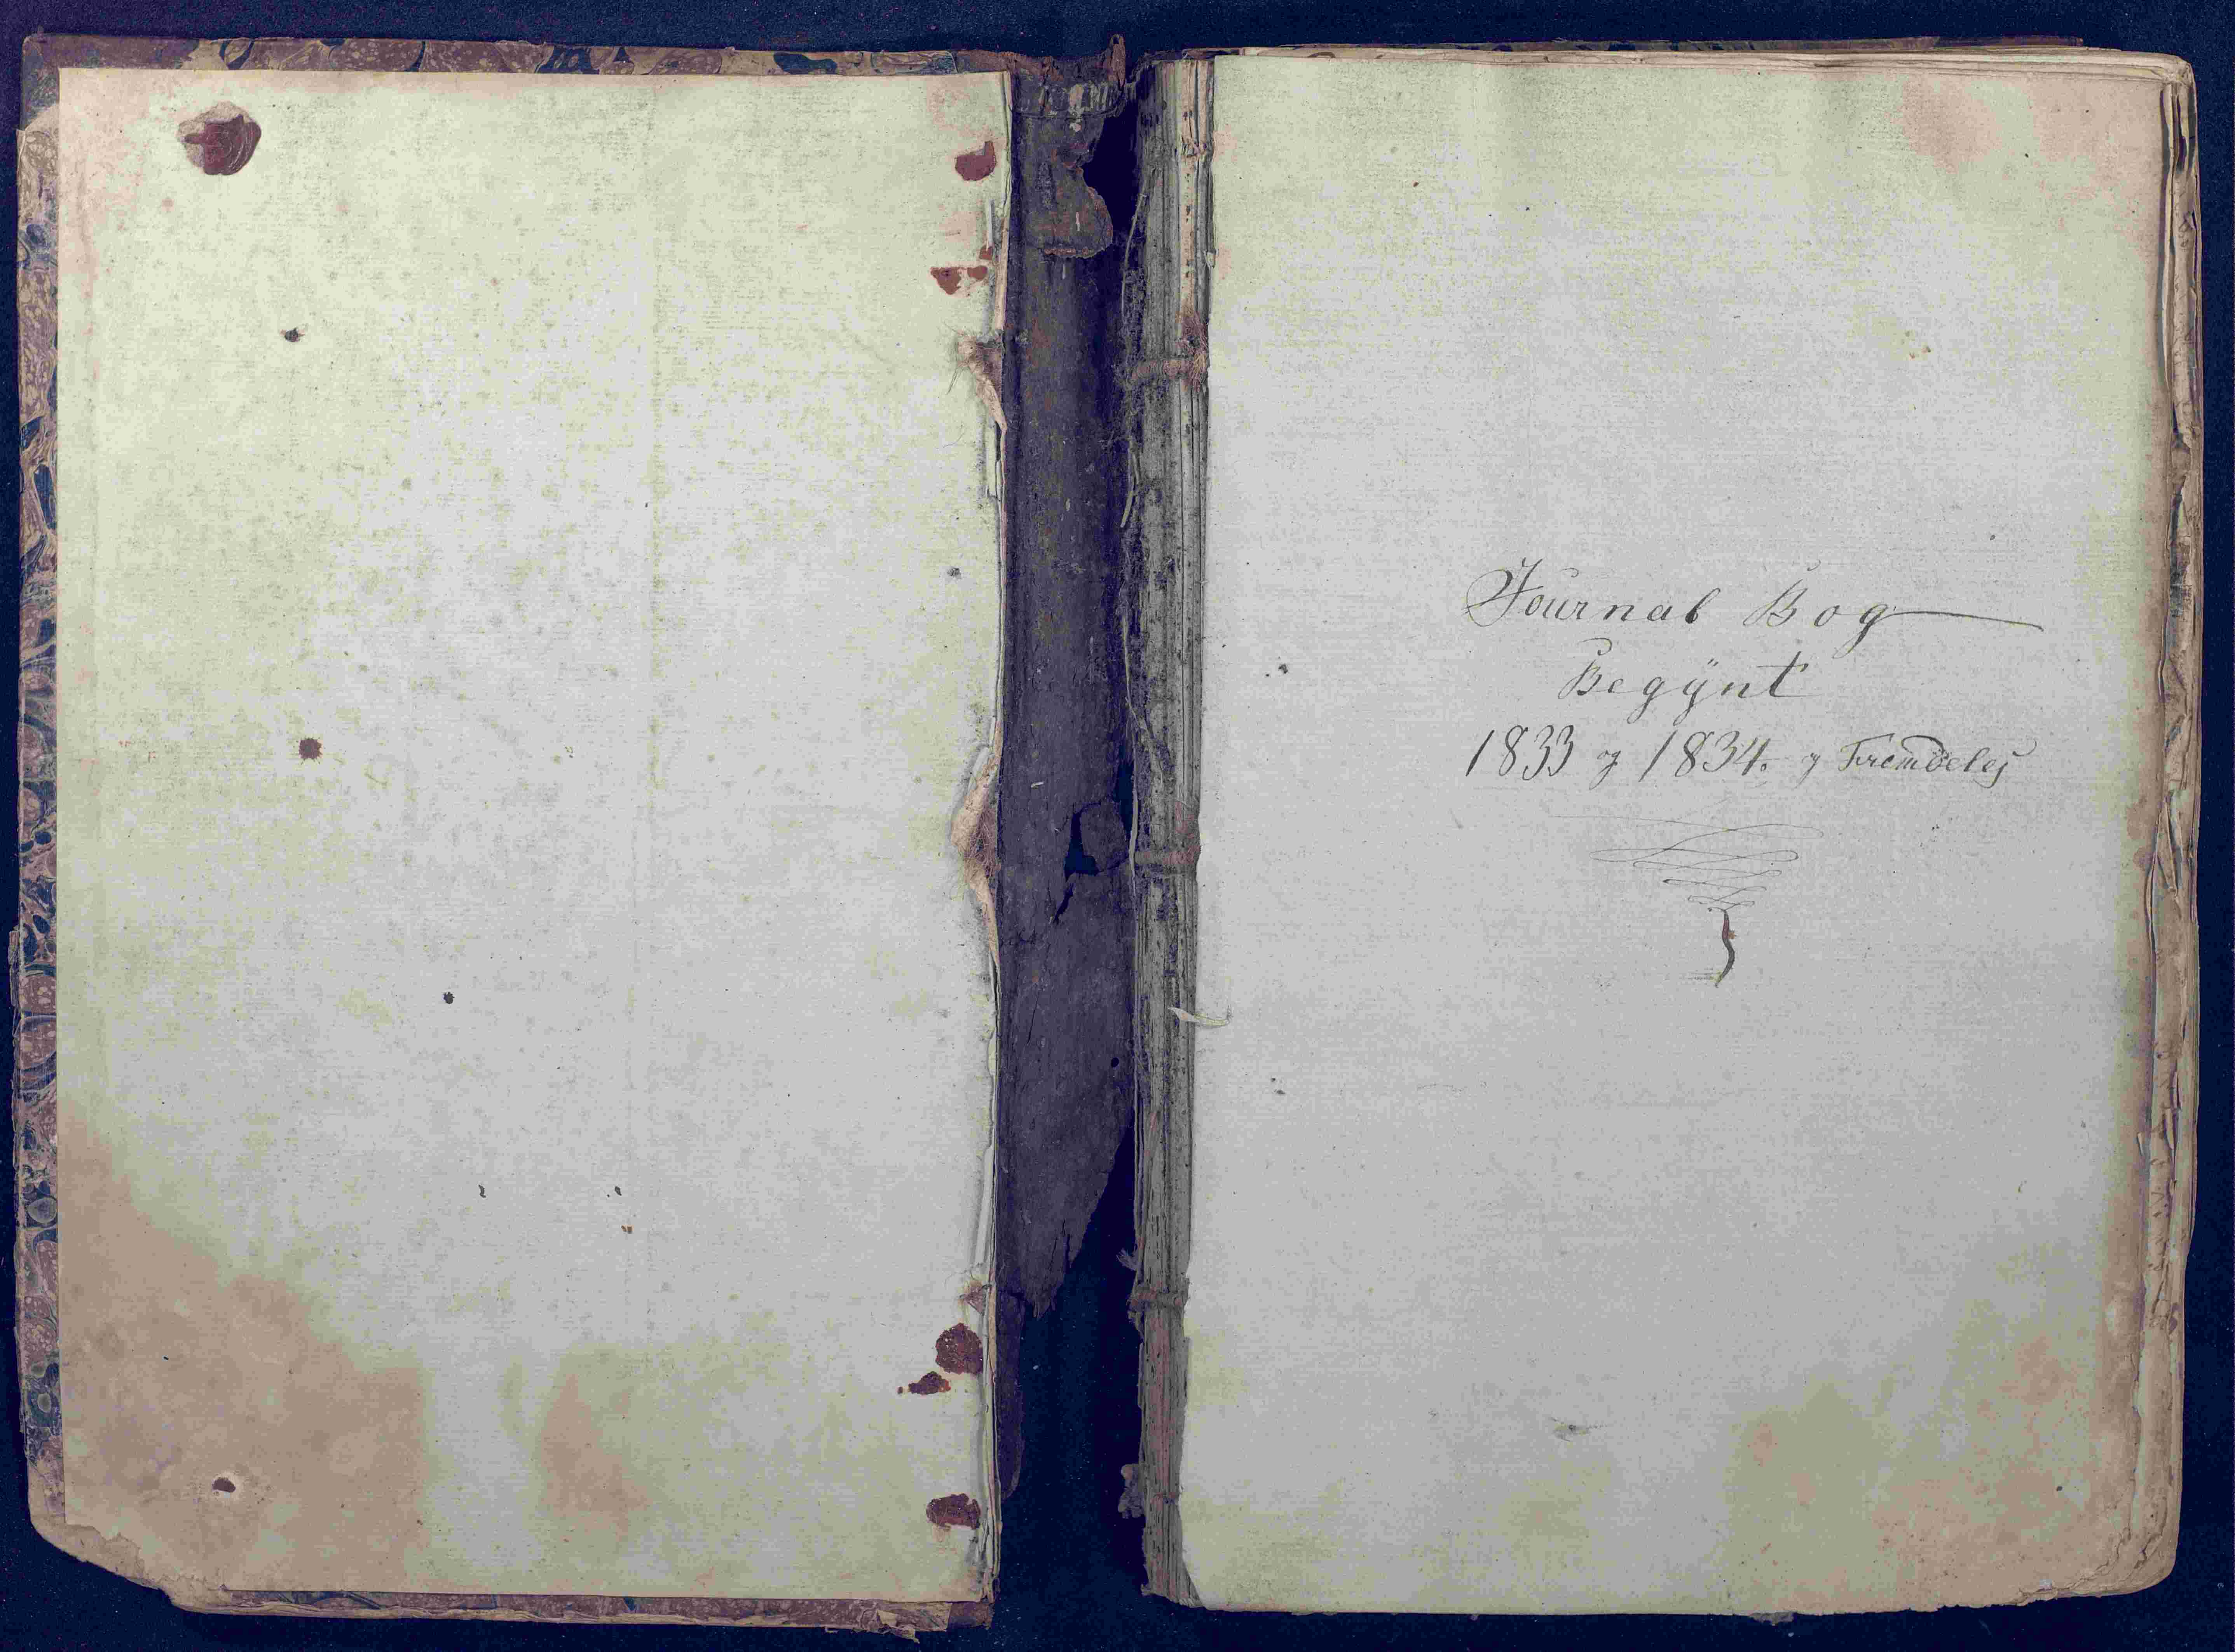 Journal Bog
Begÿnt
1833 og 1834. og Fremdeles